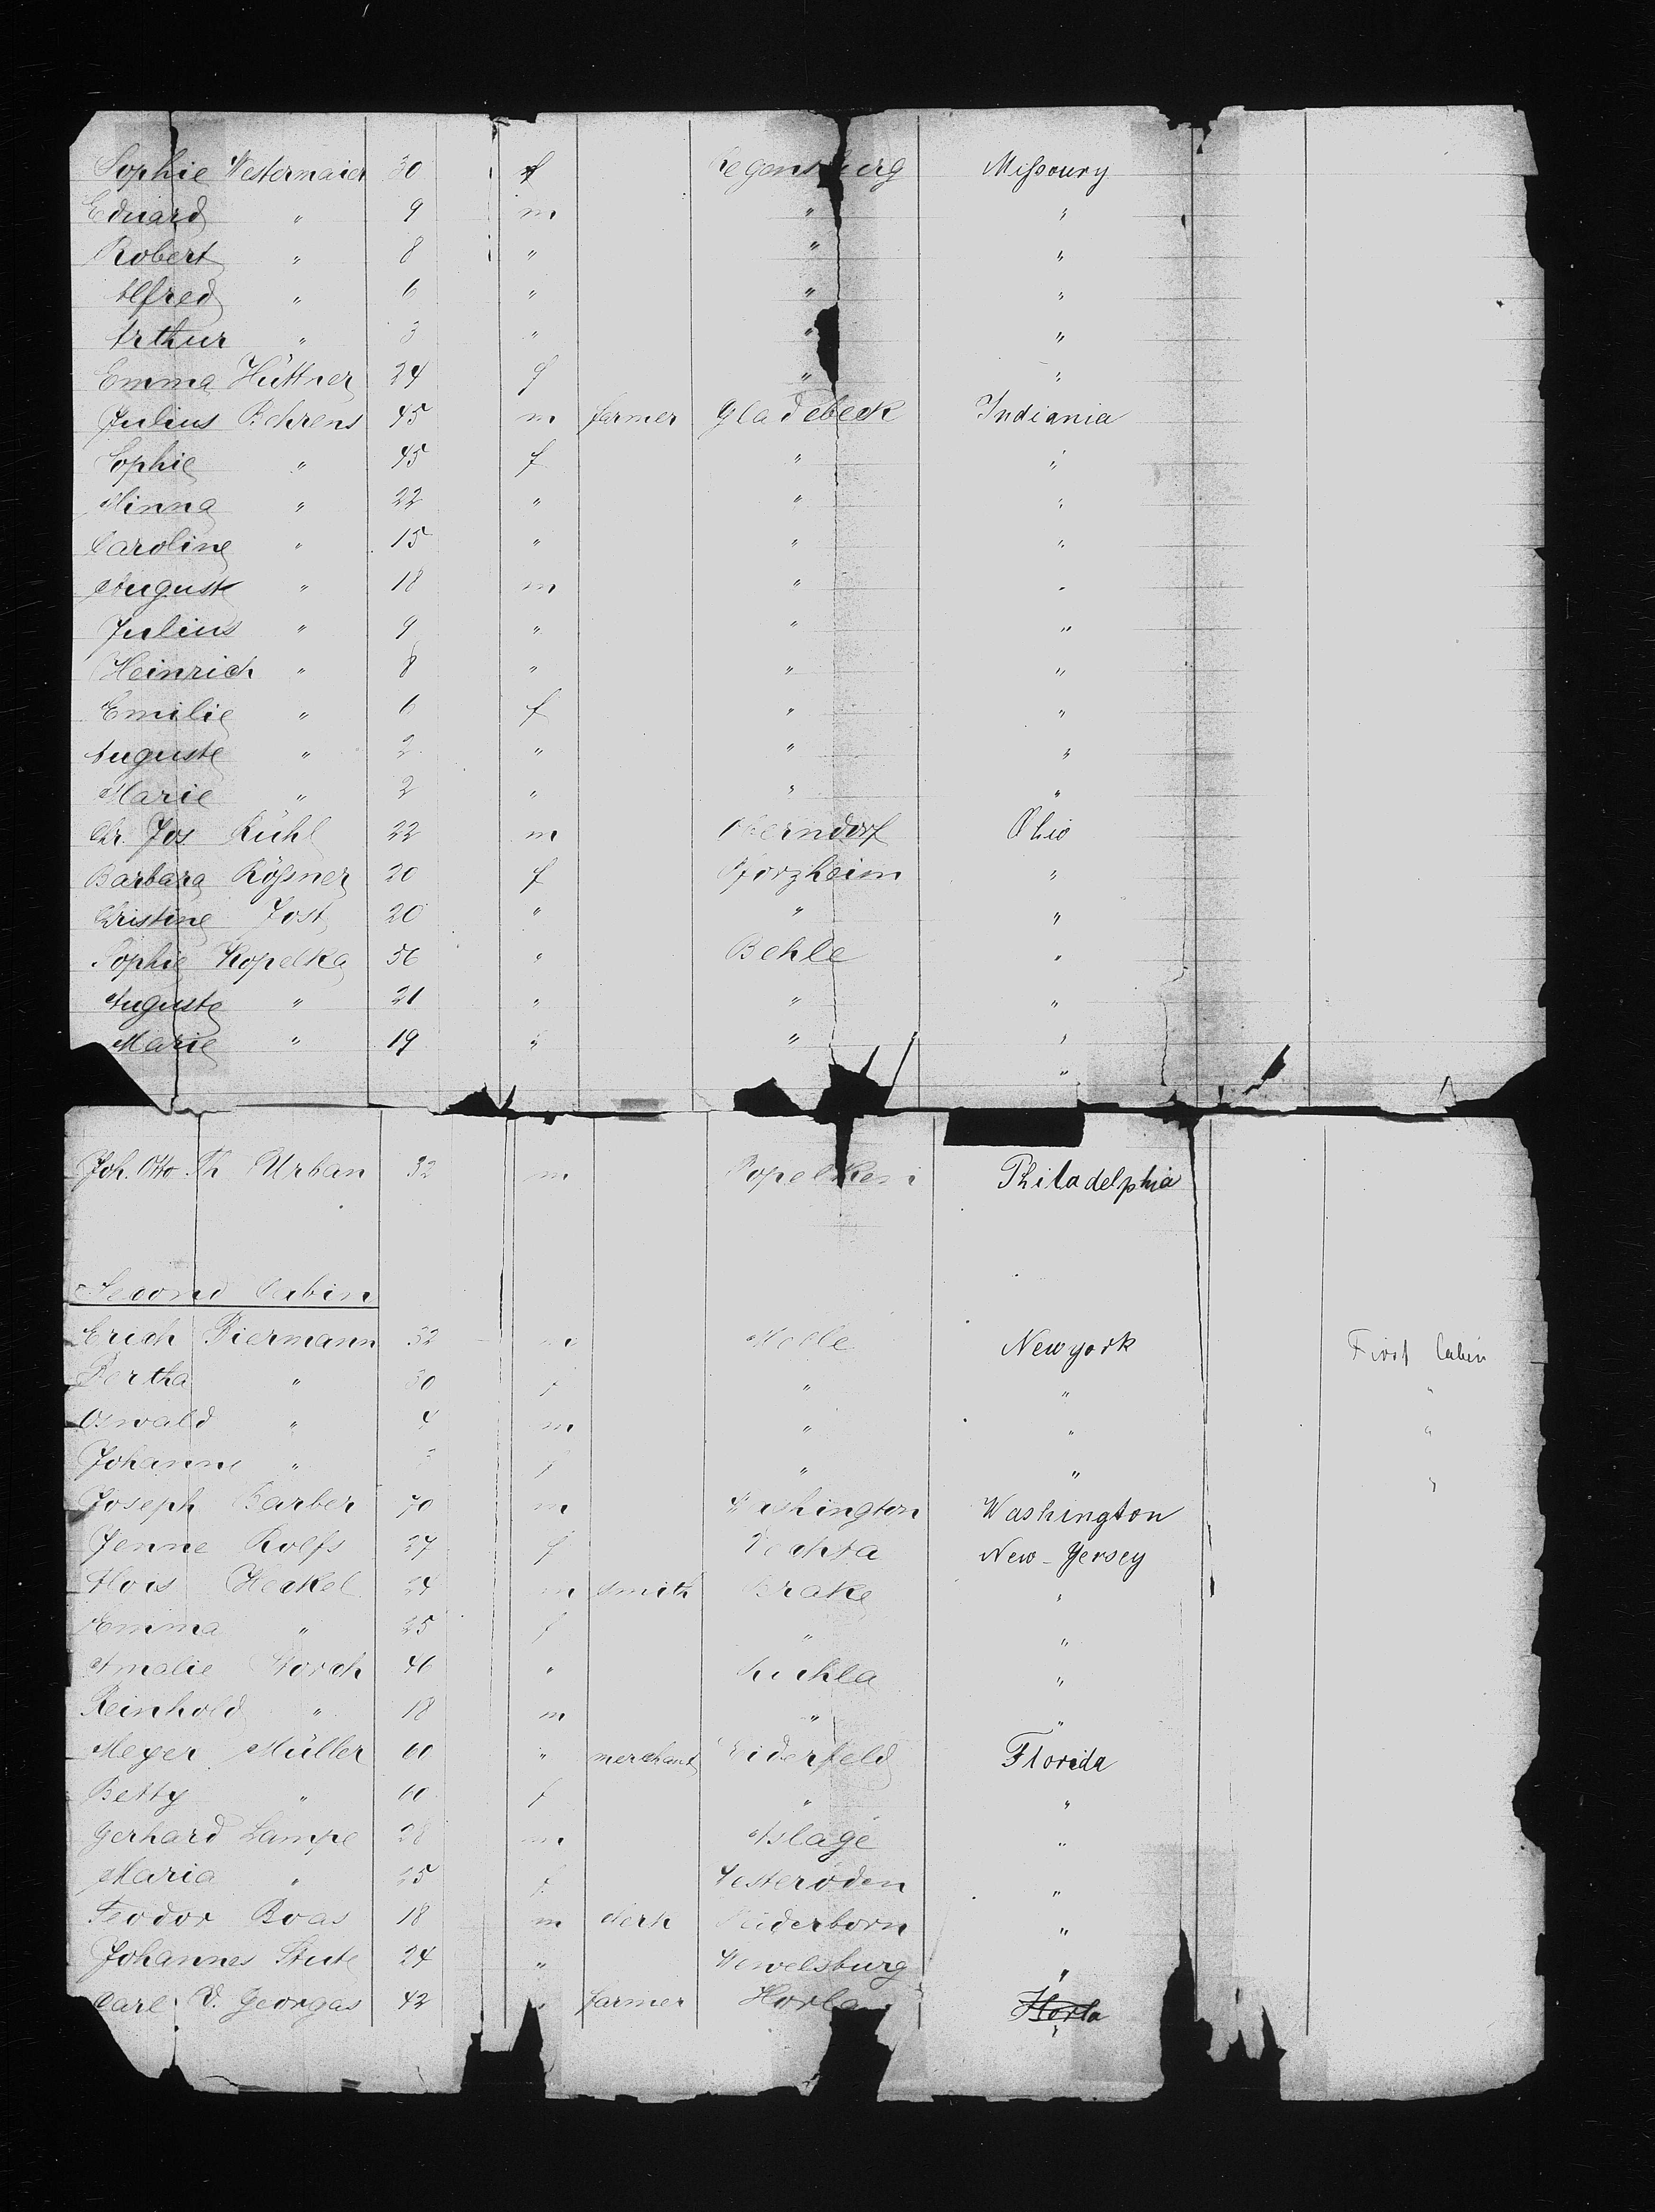 Sophie Westermaier 30 f Regensburg Missoury
Eduard " 9 m " "
Robert " 8 " " "
Alfred " 6 " " "
Arthur " 3 " " "
Emma Hüttner 24 f " "
Julius Behrens 45 m farmer Gladebeck Indiania
Sophie " 45 f " "
Minna " 22 " " "
Caroline " 15 " " "
August " 18 m " "
Julius " 9 " " "
Heinrich " 8 " " "
Emilie " 6 f " "
Auguste " 2 " " "
Marie " 2 " " "
Chr. Jos. Kühl 22 m Oberndorf Ohio
Barbara Rößner 20 f Pforzheim "
Christine Jost 20 " " "
Sophie Kopelka 56 " Behle "
Auguste " 21 " " "
Marie " 19 " " "
"
Joh. Otto Th Urban 32 m Philadelphia
Second Cabin
Erich Biermann 32 m Newyork First Cabin
Bertha " 30 f " " "
Oswald " 4 m " " "
Johanne " f " " "
Joseph Barber 70 m Washington Washington
Jenne Rolfs 27 f Vechta New-Yersey
Alois Heckel 24 m smith Brake "
Emma " 25 f " "
Amalie Storch 46 " "
Reinhold " 18 m " "
Meyer Müller 60 " merchant Florida
Betty " 60 f " "
Gerhard Lampe 28 m Aslage "
Maria " 25 f Westeroden "
Feodor Boas 18 m clerk Paderborn "
Johannes Stute 24 " Wewelsburg "
Carl V. Georgas 42 farmer Horla Horla